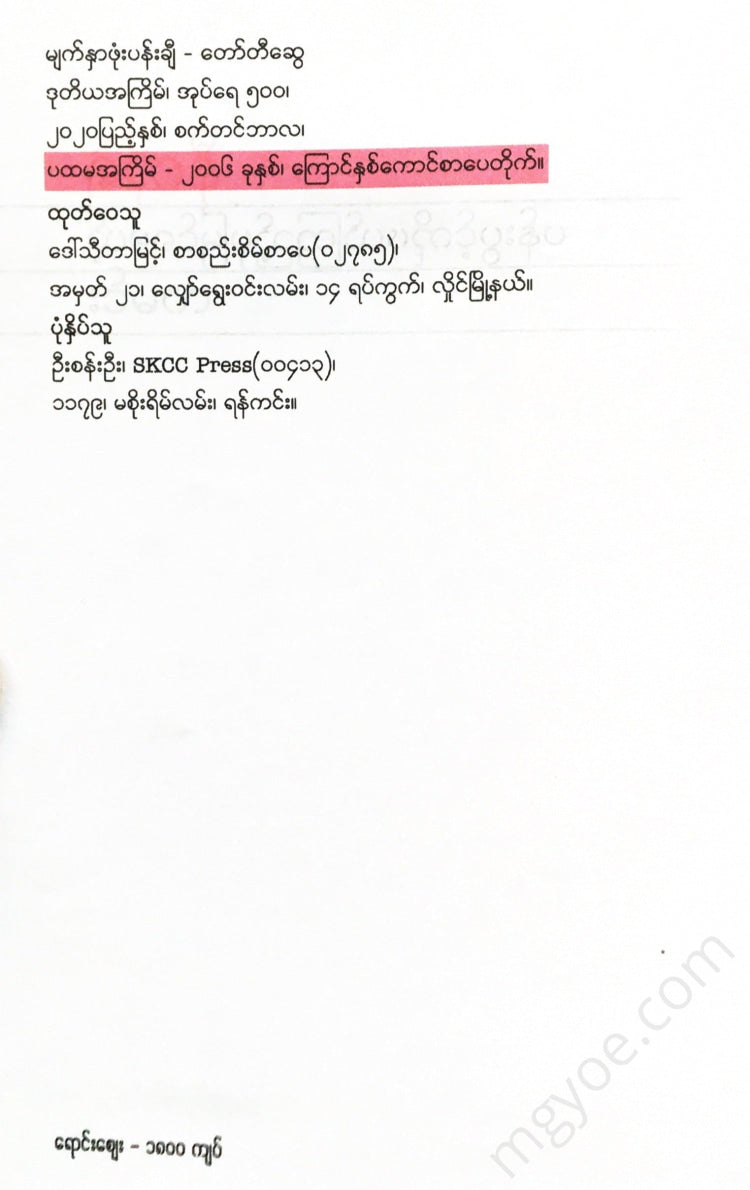 မျက်နှာဖုံးပန်းချီ - တော်တီဆွေ
ဒုတိယအကြိမ်၊ အုပ်ရေ ၅၀၀၊
၂၀၂၀ပြည့်နှစ်၊ စက်တင်ဘာလ၊
ပထမအကြိမ် - ၂၀၀၆ ခုနှစ်၊ ကြောင်နှစ်ကောင်စာပေတိုက်။
ထုတ်ဝေသူ
ဒေါ်သီတာမြင့်၊ စာစည်းစိမ်စာပေ(၀၂၇၈၅)၊
အမှတ် ၂၁၊ လျှော်ရွေးဝင်းလမ်း၊ ၁၄ ရပ်ကွက်၊ လှိုင်မြို့နယ်။
ပုံနှိပ်သူ
ဦးစန်းဦး၊ SKCC Press(၀၀၄၁၃)၊
၁၁၇၉၊ မစိုးရိမ်လမ်း၊ ရန်ကင်း။
mgyoe.com
ရောင်းဈေး - ၁၈၀၀ ကျပ်